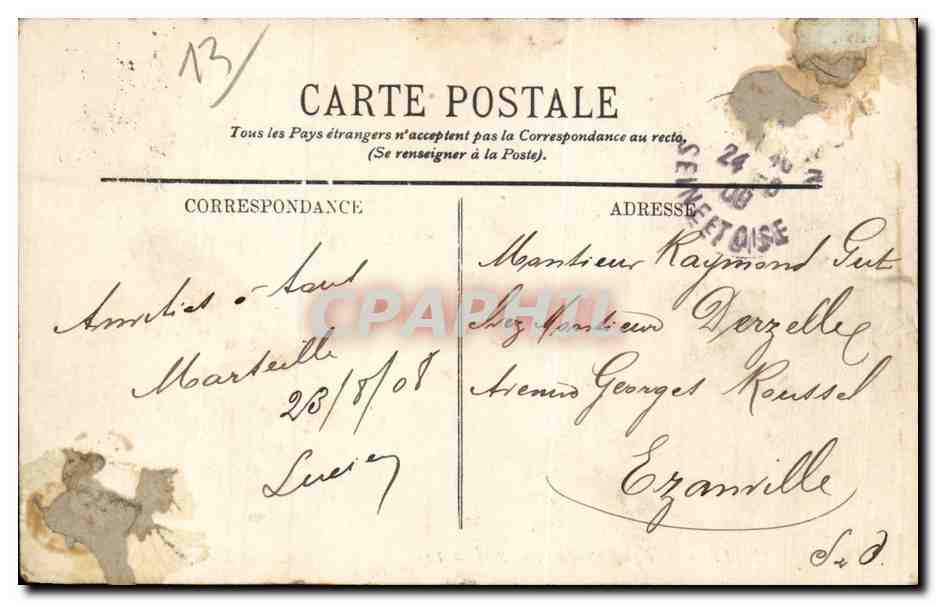 13/
CARTE POSTALE
Tous les Pays étrangers n'acceptent pas la Correspondance au recto.
(Se renseigner à la Poste).
24
08
SEINE ET OISE
CORRESPONDANCE
ADRESSE
Amitiés à tous
Marseille
23/8/08
Lucien
Monsieur Raymond Gut
chez Monsieur Derzelle
Avenue Georges Roussel
Ezanville
S et O.
CPAPHIL